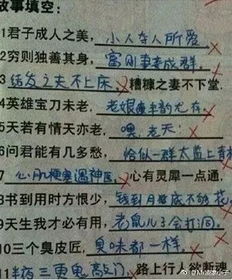 故事填空:
1君子成人之美,小人夺人所爱
2穷则独善其身,富则妻妾成群。
3结发之夫不上床,糟糠之妻不下堂.
4英雄宝刀未老,老娘风韵尤存,
5天若有情天亦老,嘿,老天!
6问君能有几多愁,恰似一群太监上青楼
7心肌梗塞遇神医,心有灵犀一点通,
8书到用时方恨少,钱到月底不够花
9天生我才必有用,老鼠儿子会打洞,
10三个臭皮匠,臭味都一样,
11半夜三更鬼敲门,路上行人欲断魂